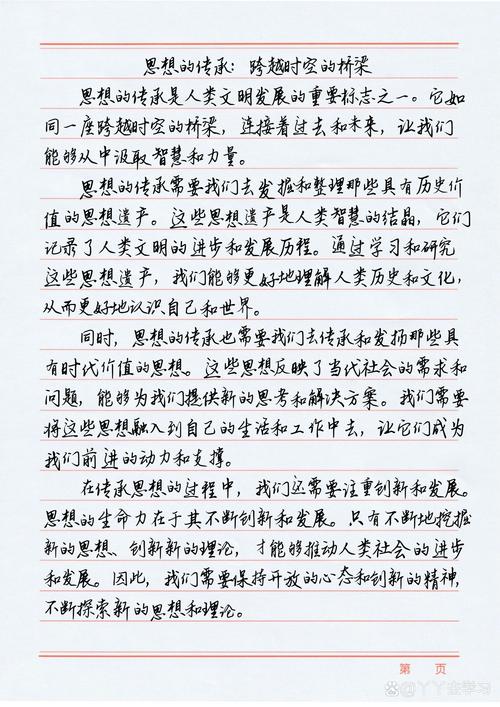 思想的传承:跨越时空的桥梁
思想的传承是人类文明发展的重要标志之一。它如
同一座跨越时空的桥梁，连接着过去和未来，让我们
能够从中汲取智慧和力量。
思想的传承需要我们去发掘和整理那些具有历史价
值的思想遗产。这些思想遗产是人类智慧的结晶，它们
记录了人类文明的进步和发展历程。通过学习和研究
这些思想遗产，我们能够更好地理解人类历史和文化，
从而更好地认识自己和世界。
同时，思想的传承也需要我们去传承和发扬那些具
有时代价值的思想。这些思想反映了当代社会的需求和
问题，能够为我们提供新的思考和解决方案。我们需要
将这些思想融入到自己的生活和工作中去，让它们成为
我们前进的动力和支撑。
在传承思想的过程中，我们还需要注重创新和发展。
思想的生命力在于其不断创新和发展。只有不断地挖掘
新的思想、创新新的理论，才能够推动人类社会的进步
和发展。因此，我们需要保持开放的心态和创新的精神，
不断探索新的思想和理论。
第 页
丫丫在学习